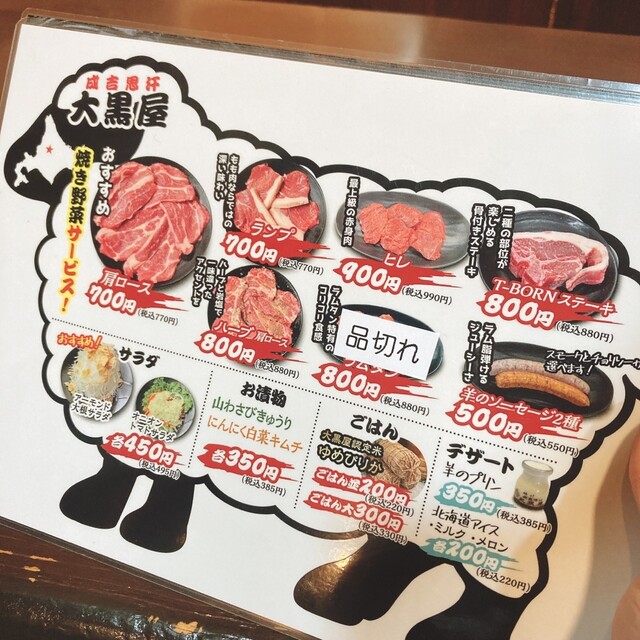 成吉思汗
大黒屋
焼き野菜サービス!
おすすめ
肩ロース
700円(税込770円)
もも肉ならではの
深い味わい
ランプ
700円(税込770円)
最上級の赤身肉
ヒレ
900円(税込990円)
二種の部位が
楽しめる
骨付きステーキ
T-BORNステーキ
800円(税込880円)
ハーブと岩塩で
一味違った
アクセントを
ハーブ肩ロース
800円(税込880円)
ラムタン特有の
コリコリ食感
品切れ
ラムタン
800円(税込880円)
ラム脂弾ける
ジューシーさ
スモークとチョリソーが
選べます!
羊のソーセージ2種
500円(税込550円)
おすすめ!
サラダ
アーモンド
大根サラダ
オニオン
トマトサラダ
各450円
(税込495円)
お漬物
山わさびきゅうり
にんにく白菜キムチ
各350円
(税込385円)
ごはん
大黒屋認定米
ゆめぴりか
ごはん並200円
(税込220円)
ごはん大300円
(税込330円)
デザート
羊のプリン
350円(税込385円)
北海道アイス
・ミルク・メロン
各200円
(税込220円)